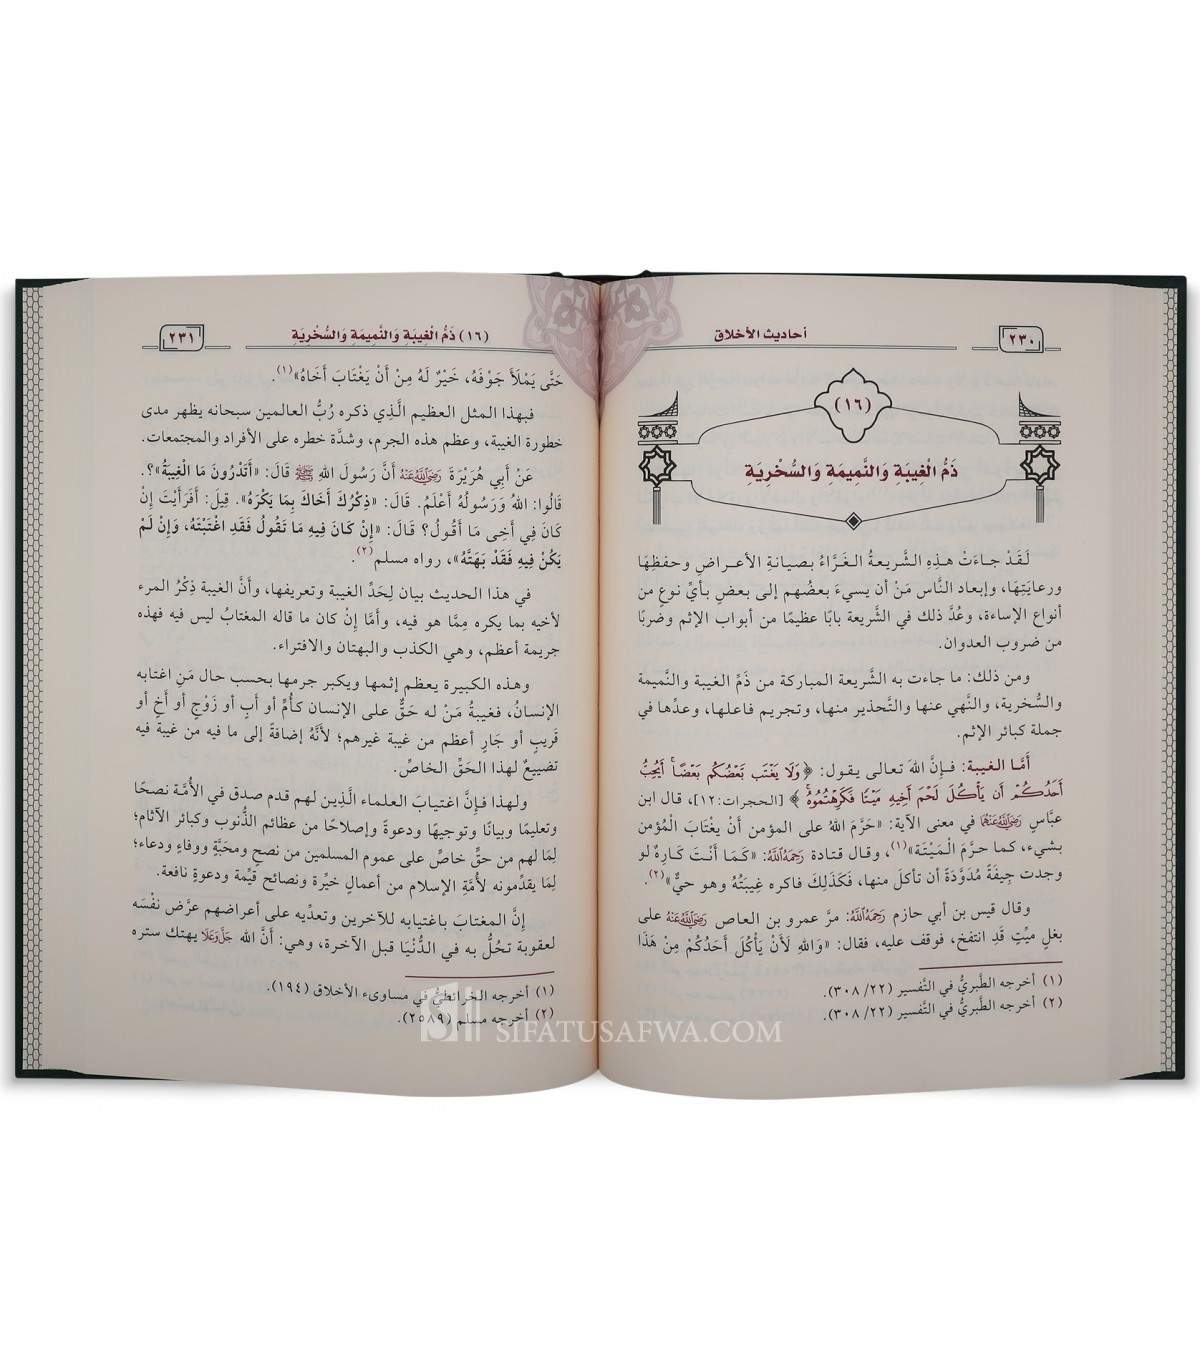 ٢٣٠
أحاديث الأخلاق
(١٦)
ذَمُّ الْغِيبَةِ وَالنَّمِيمَةِ وَالسُّخْرِيَةِ
لَقَدْ جاءَتْ هذِهِ الشَّريعةُ الغرَّاءُ بصيانةِ الأعراضِ وحفظِهَا
ورعايَتِهَا، وإبعاد النَّاس مَنْ أن يسيءَ بعضُهم إلى بعضٍ بأيِّ نوعٍ من
أنواع الإساءة، وعُدَّ ذلك في الشَّريعة بابًا عظيمًا من أبواب الإثم وضربًا
من ضروب العدوان.
ومن ذلك: ما جاءت به الشَّريعة المباركة من ذَمِّ الغيبة والنَّميمة
والسُّخرية، والنَّهي عنها والتَّحذير منها، وتجريم فاعلها، وعدِّها في
جملة كبائر الإثم.
أمَّا الغيبة: فإنَّ اللهَ تعالى يقول: ﴿وَلَا يَغْتَب بَّعْضُكُم بَعْضًا ۚ أَيُحِبُّ
أَحَدُكُمْ أَن يَأْكُلَ لَحْمَ أَخِيهِ مَيْتًا فَكَرِهْتُمُوهُ ۚ ﴾ [الحجرات: ١٢]، قال ابن
عبَّاسٍ رَضِيَ اللَّهُ عَنْهُمَا في معنى الآية: «حَرَّمَ اللهُ على المؤمن أَنْ يَغْتَابَ الْمُؤمن
بشيء، كما حرَّمَ الْمَيْتَة»(١)، وقال قتادة رَحِمَهُ اللَّهُ: «كَمَا أَنْتَ كَارِهٌ لو
وجدت جِيفَةً مُدَوَّدَةً أن تأكلَ منها، فَكَذَلِكَ فاكره غِيبَتَهُ وهو حيٌّ»(٢).
وقال قيس بن أبي حازم رَحِمَهُ اللَّهُ: مرَّ عمرو بن العاص رَضِيَ اللَّهُ عَنْهُ على
بغلٍ ميِّتٍ قَدِ انتفخ، فوقف عليه، فقال: «وَاللهِ لَأَنْ يَأْكُلَ أَحَدُكُمْ مِنْ هَذَا
(١) أخرجه الطَّبريُّ في التَّفسير (٢٢/ ٣٠٨).
(٢) أخرجه الطَّبريُّ في التَّفسير (٢٢/ ٣٠٨).
(١٦) ذَمُّ الْغِيبَةِ وَالنَّمِيمَةِ وَالسُّخْرِيَةِ
٢٣١
حَتَّى يَمْلَأَ جَوْفَهُ، خَيْرٌ لَهُ مِنْ أَنْ يَغْتَابَ أَخَاهُ»(١).
فبهذا المثل العظيم الَّذِي ذكره رُبُّ العالمين سبحانه يظهر مدى
خطورة الغيبة، وعظم هذه الجرم، وشدَّة خطره على الأفراد والمجتمعات.
عَنْ أَبِي هُرَيْرَةَ رَضِيَ اللَّهُ عَنْهُ أَنَّ رَسُولَ اللهِ ﷺ قَالَ: «أَتَدْرُونَ مَا الْغِيبَةُ»؟.
قَالُوا: اللهُ وَرَسُولُهُ أَعْلَمُ. قَالَ: «ذِكْرُكَ أَخَاكَ بِمَا يَكْرَهُ». قِيلَ: أَفَرَأَيْتَ إِنْ
كَانَ فِي أَخِي مَا أَقُولُ؟ قَالَ: «إِنْ كَانَ فِيهِ مَا تَقُولُ فَقَدِ اغْتَبْتَهُ، وَإِنْ لَمْ
يَكُنْ فِيهِ فَقَدْ بَهَتَّهُ»، رواه مسلم(٢).
في هذا الحديث بيان لِحَدِّ الغيبة وتعريفها، وأنَّ الغيبة ذِكْرُ المرء
لأخيه بما يكره مِمَّا هو فيه، وأمَّا إِنْ كان ما قاله المغتابُ ليس فيه فهذه
جريمة أعظم، وهي الكذب والبهتان والافتراء.
وهذه الكبيرة يعظم إثمها ويكبر جرمها بحسب حال مَنِ اغتابه
الإنسانُ، فغيبةُ مَنْ له حَقٌّ على الإنسان كأُمٍّ أو أبٍ أو زَوْجٍ أو أخٍ أو
قَريبٍ أو جَارٍ أعظم من غيبة غيرهم؛ لأنَّهُ إضافةً إلى ما فيه من غيبة فيه
تضييعٌ لهذا الحَقِّ الخاصِّ.
ولهذا فإنَّ اغتيابَ العلماء الَّذِين لهم قدم صدق في الأُمَّة نصحًا
وتعليمًا وبيانًا وتوجيهًا ودعوةً وإصلاحًا من عظائم الذُّنوب وكبائر الآثام؛
لِمَا لهم من حقٍّ خاصٍّ على عموم المسلمين من نصحٍ ومحَبَّةٍ ووفاءٍ ودعاء؛
لِمَا يقدِّمونه لأُمَّةِ الإسلام من أعمالٍ خيِّرة ونصائح قيِّمة ودعوةٍ نافعة.
إنَّ المغتابَ باغتيابه للآخرين وتعدِّيه على أعراضهم عرَّض نفْسَه
لعقوبة تحُلُّ به في الدُّنْيَا قبل الآخرة، وهي: أنَّ الله جَلَّ وَعَلَا يهتك ستره
(١) أخرجه الخرائطيُّ في مساوىء الأخلاق (١٩٤).
(٢) أخرجه مسلم (٢٥٨٩).
SIFATUSAFWA.COM